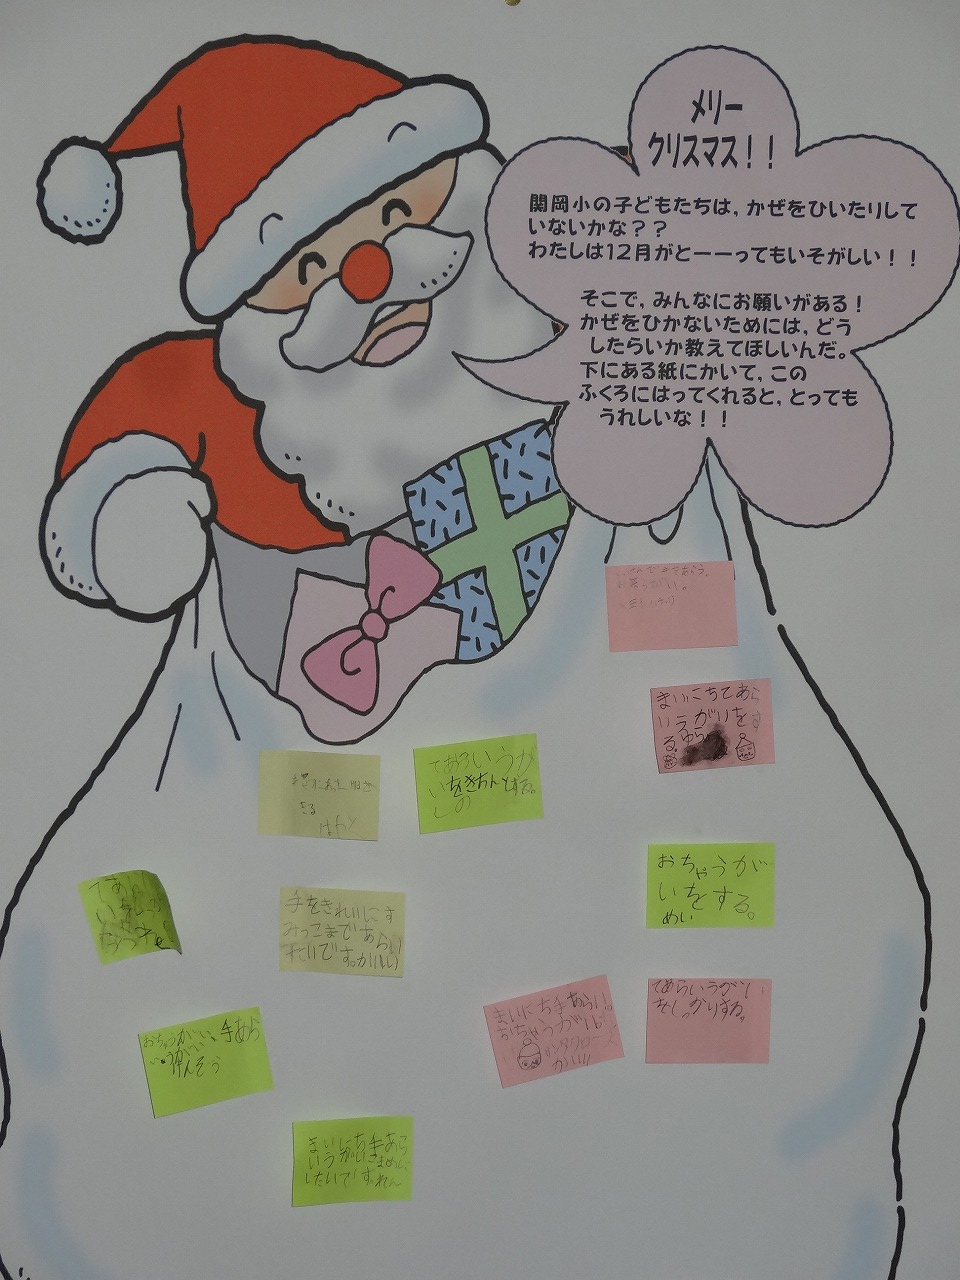 メリー
クリスマス！！
関岡小の子どもたちは，かぜをひいたりして
いないかな？？
わたしは12月がとーーってもいそがしい！！
そこで，みんなにお願いがある！
かぜをひかないためには，どう
したらいか教えてほしいんだ。
下にある紙にかいて，この
ふくろにはってくれると，とっても
うれしいな！！
まいにちてあら
いうがいをす
る。ゆら
てあらいうが
いをきちんとする。
しの
おちゃうが
いをする。
めい
手をきれいにす
みっこまであらい
たいです
てあらいうがい
をしっかりする。
まいにち手あらい。
おちゃうがい
おちゃうがい、手あら
い
けんぞう
まいにち手あら
いうがいこまめに
したいです